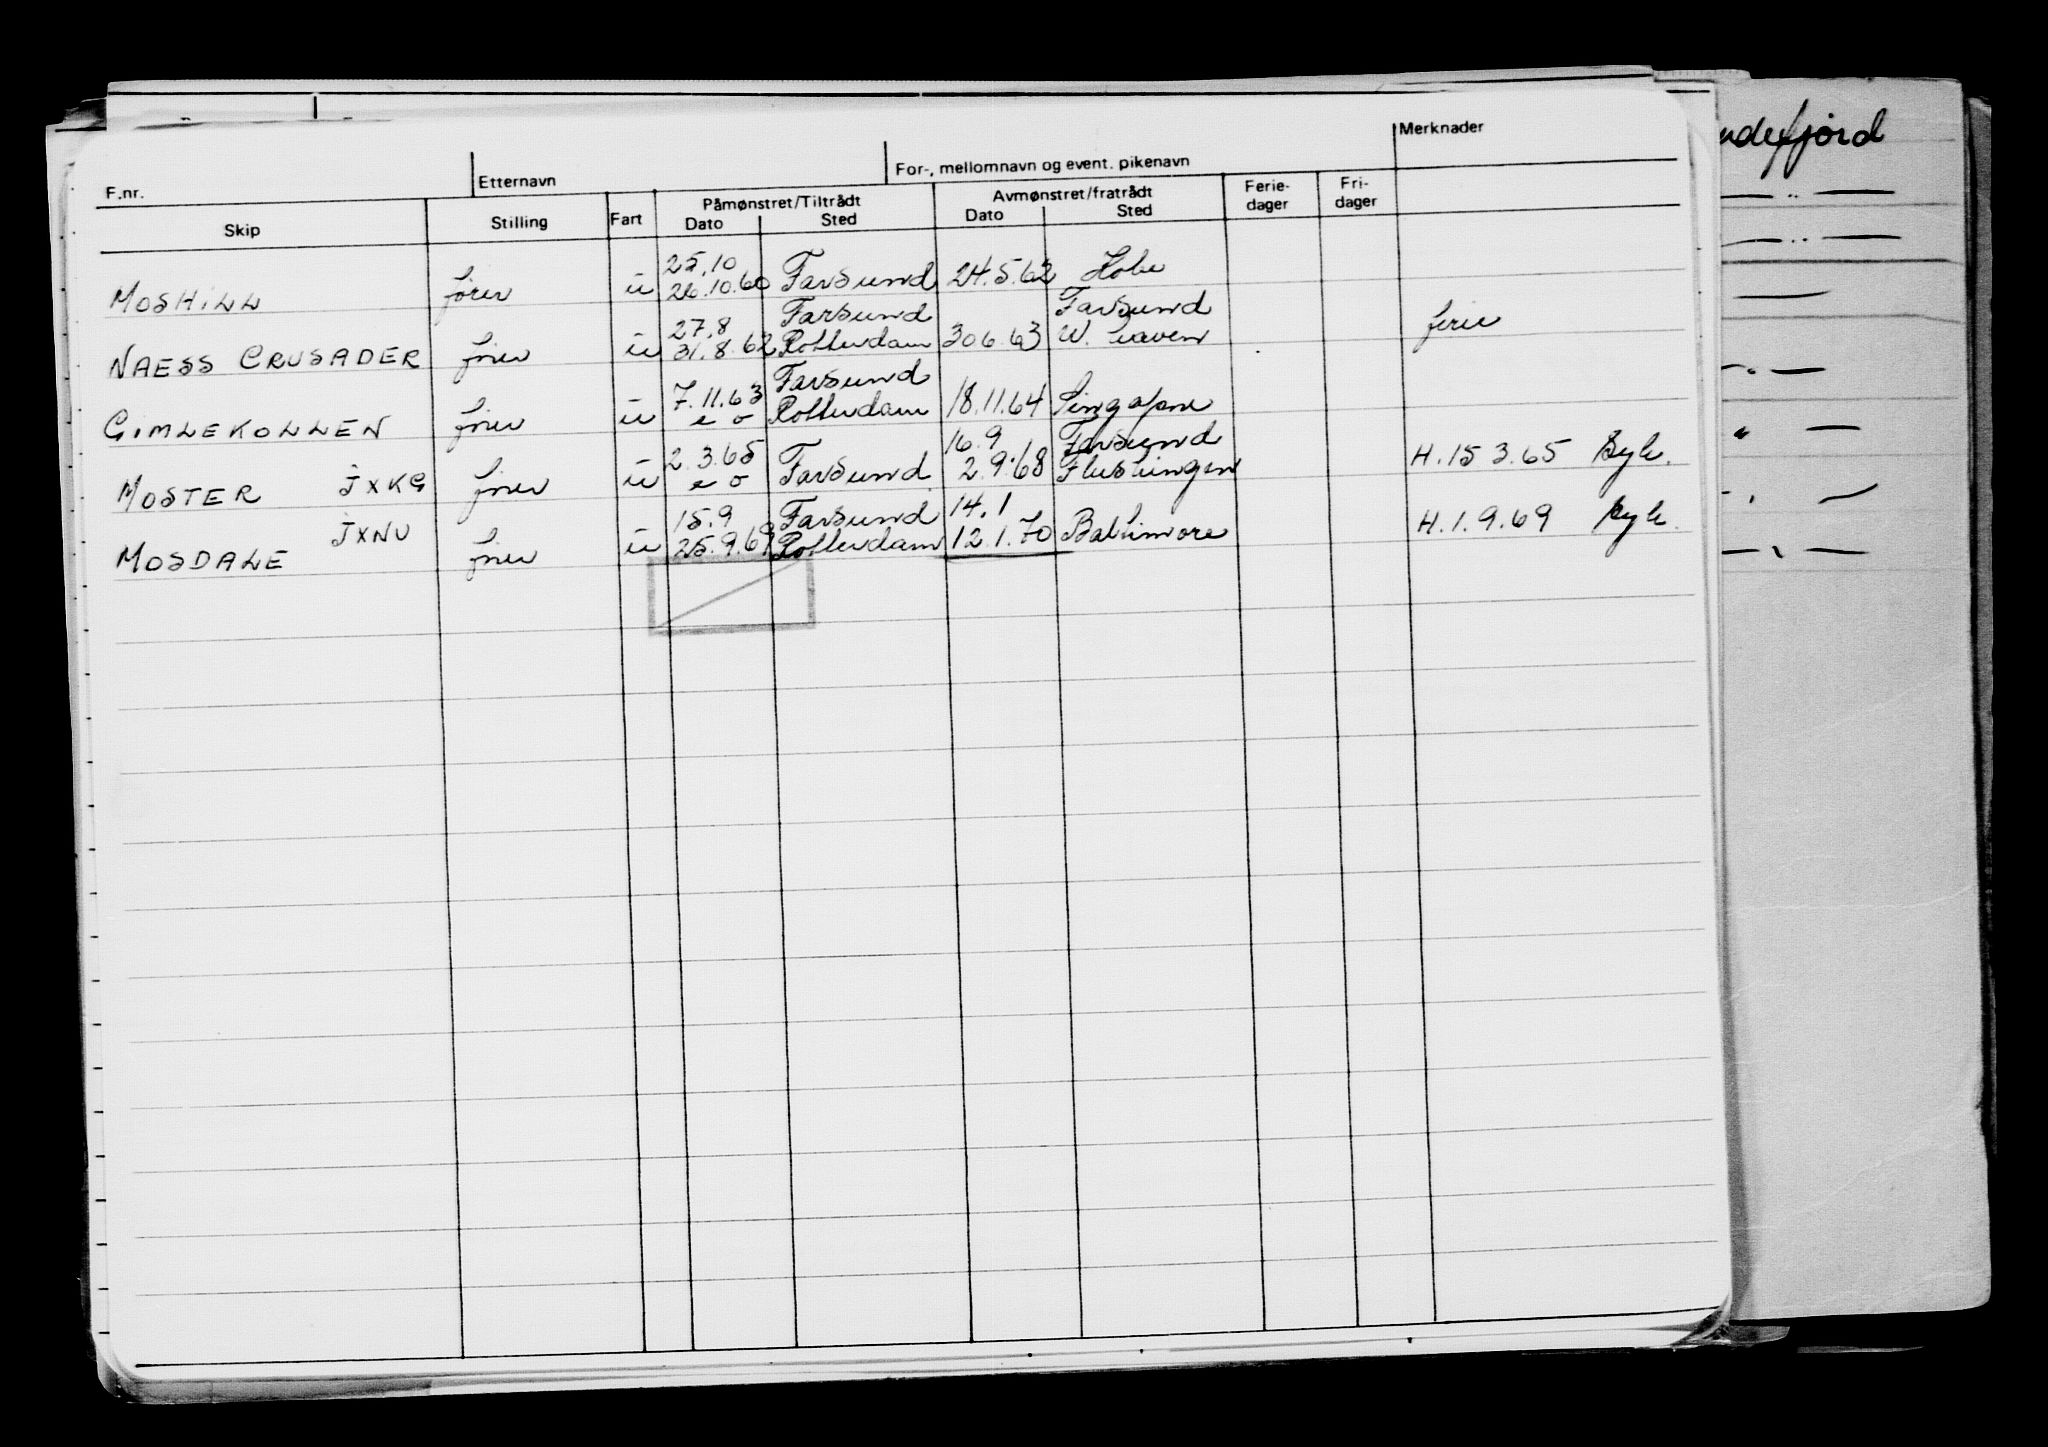 F.nr. Etternavn For-, mellomnavn og event. pikenavn Merknader
Skip Stilling Fart Påmønstret/Tiltrådt Avmønstret/fratrådt Ferie-dager Fri-dager
Dato Sted Dato Sted
25.10
MOSHILL fører u 26.10.60 Farsund 24.5.62 Kobe
27.8 Farsund Farsund
NAESS CRUSADER fører u 31.8.62 Rotterdam 30 6.63 W. haven ferie
7.11.63 Farsund
GIMLEKOLLEN fører u e o Rotterdam 18.11.64 Singapore
2.3.65 16.9 Farsund
MOSTER JXKG fører u e o Farsund 2.9.68 Flushingen H.15 3.65 syk.
JXNU 15.9 Farsund 14.1
MOSDALE fører u 25.9.69 Rotterdam 12.1.70 Baltimore H.1.9.69 syk.
ndefjord